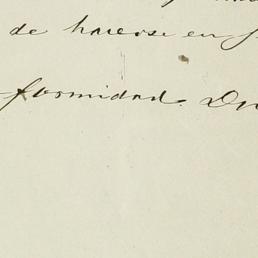 de hacerse en
formidad. Du